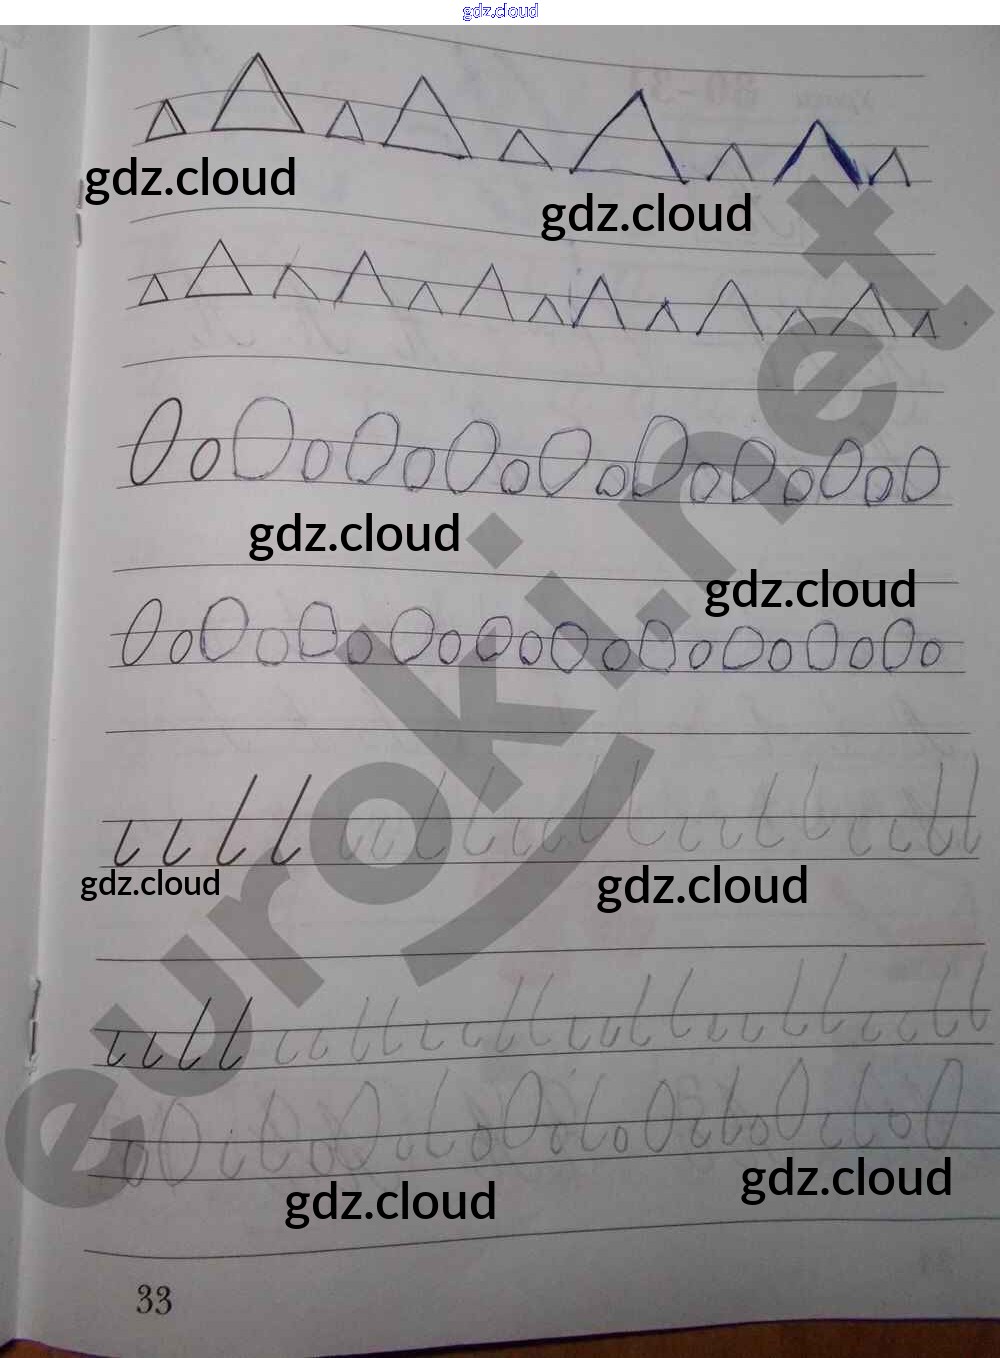 gdz.cloud
gdz.cloud
gdz.cloud
gdz.cloud
gdz.cloud
gdz.cloud
gdz.cloud
gdz.cloud
gdz.cloud
euroki.net
33